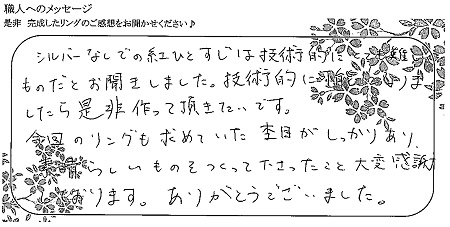 職人へのメッセージ
是非 完成したリングのご感想をお聞かせください♪
シルバーなしでの紅ひとすじは技術的に 難し
ものだとお聞きしました。技術的に なりま
したら是非作って頂きたいです。
今回のリングも求めていた杢目がしっかりあり、
らしいものをつくって下さったこと大変感謝
おります。ありがとうございました。